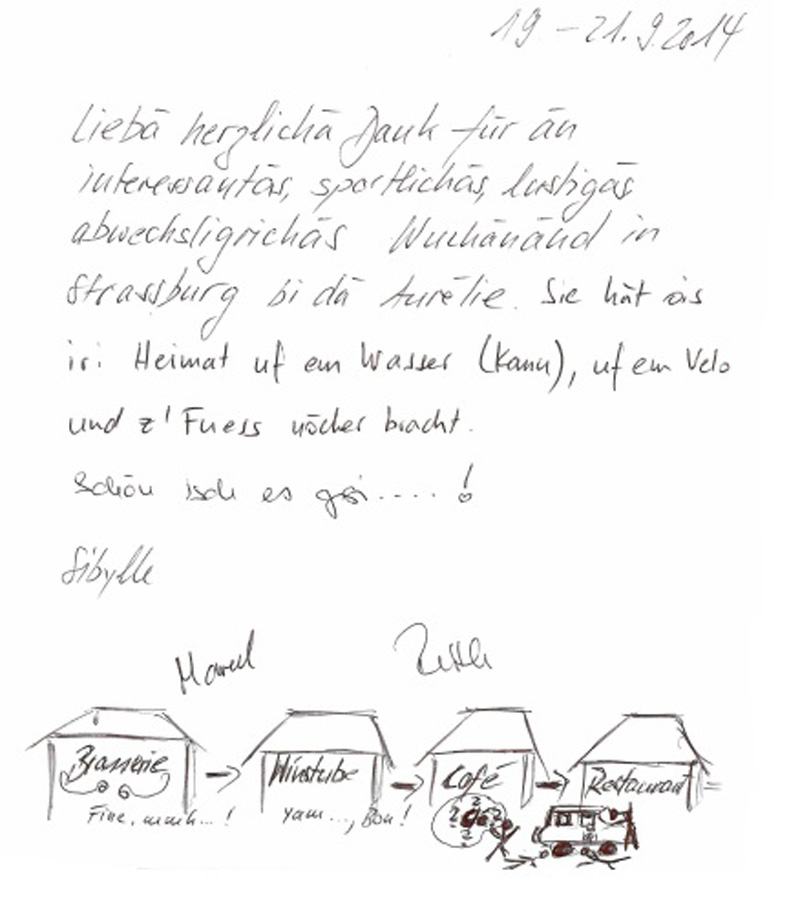 19 – 21.9.2014
Liebä herzlichä Dank für än
interessantäs, sportlichäs, lustigäs
abwechsligrichäs Wuchänänd in
Strassburg bi dä Aurélie. Sie hät öis
iri Heimat uf em Wasser (Kanu), uf em Velo
und z'Fuess nöcher bracht.
Schön isch es gsi....!
Sibylle
Marcel
Brasserie Winstube Café Restaurant
Fine, mmh...! Yam..., Bon!